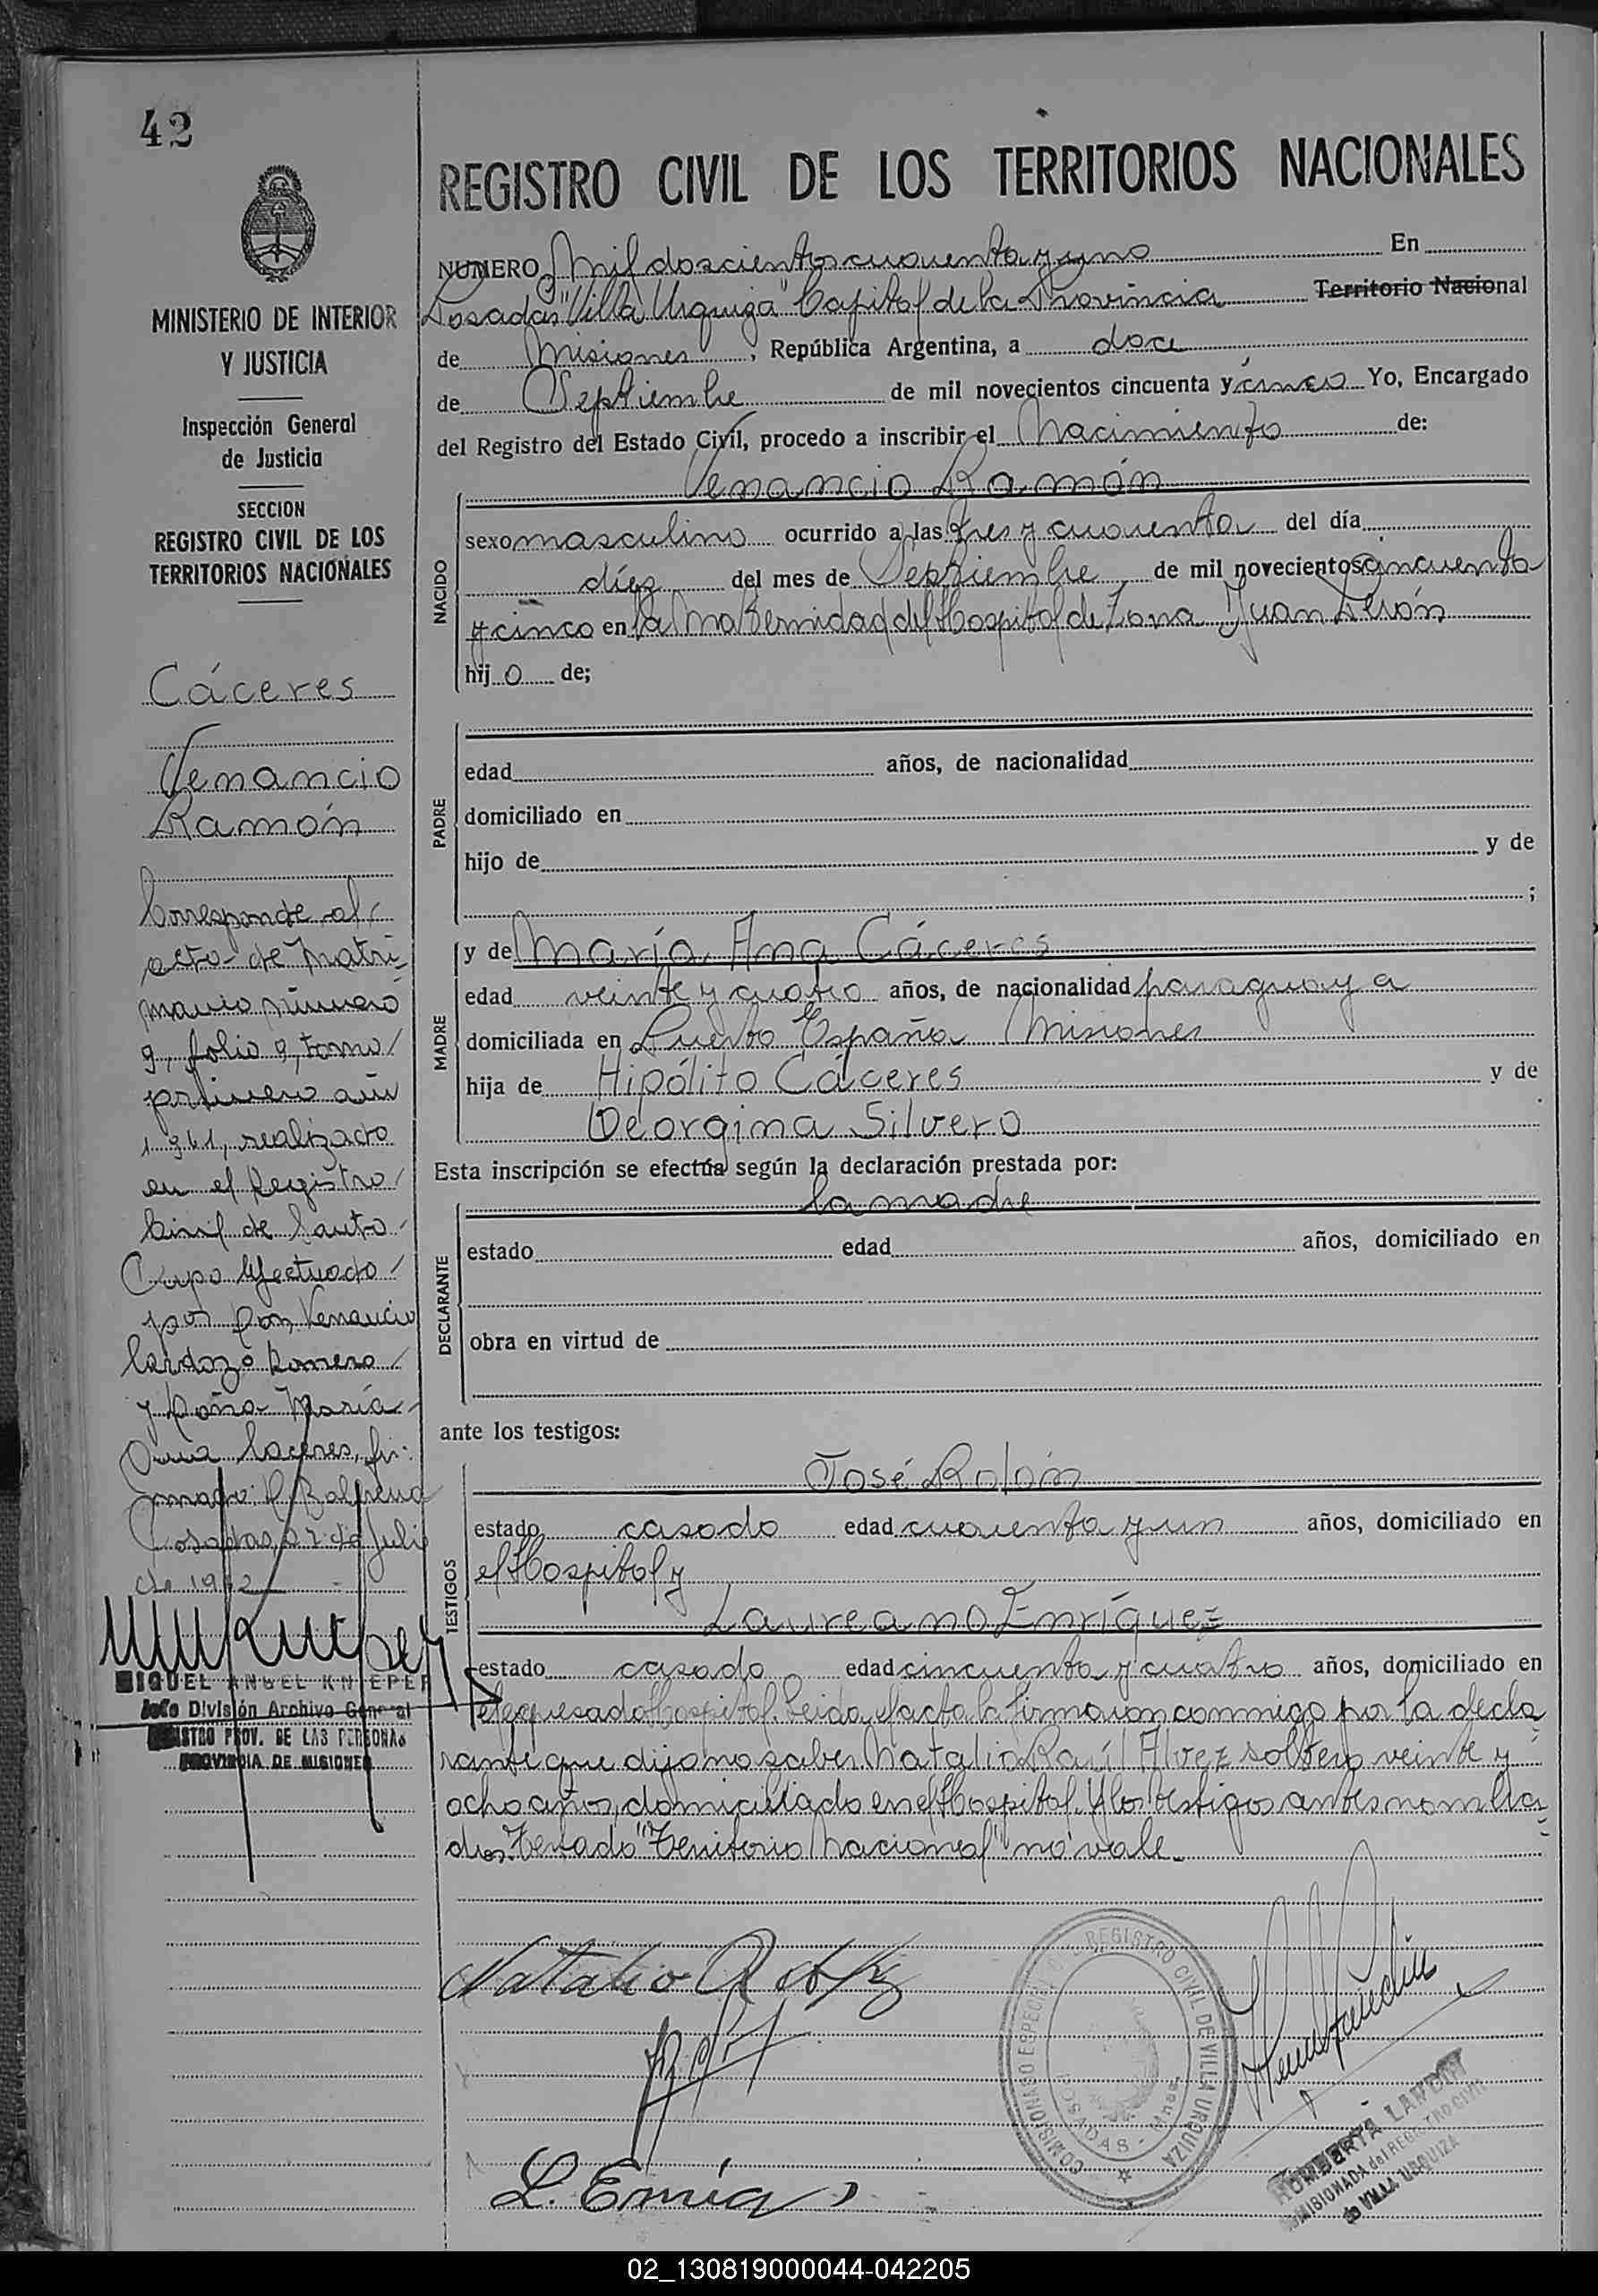 42
REGISTRO CIVIL DE LOS TERRITORIOS NACIONALES
MINISTERIO DE INTERIOR
Y JUSTICIA
Inspección General
de Justicia
SECCION
REGISTRO CIVIL DE LOS
TERRITORIOS NACIONALES
Cáceres
Venancio
Ramón
Corresponde al
acta de Matri
monio número
9, folio 9, tomo
primero año
1961, realizado
en el Registro
Civil de Santo
Pipo efectuado
por Don Venancio
Cardozo Romero
y Doña María
Ana Caceres, fir
mado:
Posadas, 27 de Julio
de 1962
MIGUEL ANGEL KNIEPER
Jefe División Archivo General
REGISTRO PROV. DE LAS PERSONAS
PROVINCIA DE MISIONES
NUMERO Mil doscientos cuarenta y uno En
Posadas "Villa Urquiza" Capital de la Provincia Territorio Nacional
de Misiones, República Argentina, a doce
de Septiembre de mil novecientos cincuenta y cinco Yo, Encargado
del Registro del Estado Civil, procedo a inscribir el Nacimiento de:
Venancio Ramón
NACIDO
sexo masculino ocurrido a las tres y cuarenta del día
diez del mes de Septiembre de mil novecientos cincuenta
y cinco en la Maternidad del Hospital de Zona Juan Perón
hij o de;
PADRE
edad años, de nacionalidad
domiciliado en
hijo de y de
;
MADRE
y de María Ana Cáceres
edad veinte y cuatro años, de nacionalidad paraguaya
domiciliada en Puerto España Misiones
hija de Hipólito Cáceres y de
Deorgina Silvero
Esta inscripción se efectúa según la declaración prestada por:
la madre
DECLARANTE
estado edad años, domiciliado en
obra en virtud de
ante los testigos:
TESTIGOS
José Rolón
estado casado edad cuarenta y un años, domiciliado en
el Hospital y
Laureano Enríquez
estado casado edad cincuenta y cuatro años, domiciliado en
el expresado Hospital. Leida el acta la firmaron conmigo por la decla
rante que dijo no saber Natalio Raúl Alvez soltero veinte y
ocho años, domiciliado en el Hospital. Y los testigos antes nombra
dos. Testado "Territorio Nacional" no vale.
COMISIONADO ESPECIAL DEL REGISTRO CIVIL DE VILLA URQUIZA
POSADAS - Mnes.
LANDIN
COMISIONADA del REGISTRO CIVIL
de VILLA URQUIZA
02_130819000044-042205